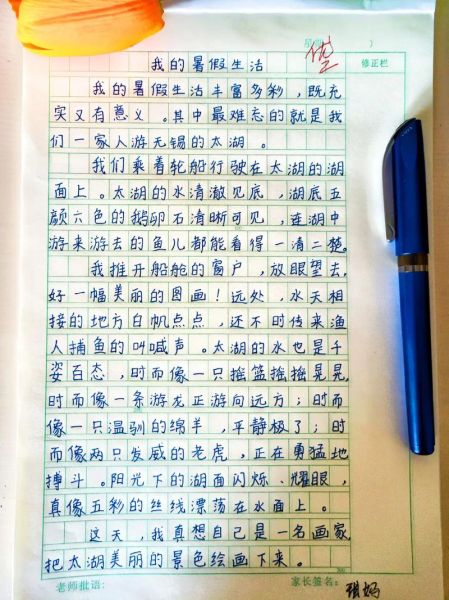 星期（ ）
优
修正栏
我的暑假生活
我的暑假生活丰富多彩，既充
实又有意义。其中最难忘的就是我
们一家人游无锡的太湖。
我们乘着轮船行驶在太湖的湖
面上。太湖的水清澈见底，湖底五
颜六色的鹅卵石清晰可见，连湖中
游来游去的鱼儿都能看得一清二楚。
我推开船舱的窗户，放眼望去，
好一幅美丽的图画！远处，水天相
接的地方白帆点点，还不时传来渔
人捕鱼的叫喊声。太湖的水也是千
姿百态，时而像一只摇篮摇摇晃晃，
时而像一条游龙正游向远方；时而
像一只温驯的绵羊，平静极了；时
而像两只发威的老虎，正在勇猛地
搏斗。阳光下的湖面闪烁、耀眼，
真像五彩的丝线漂荡在水面上。
这天，我真想自己是一名画家
把太湖美丽的景色绘画下来。
老师批语：
家长签名：